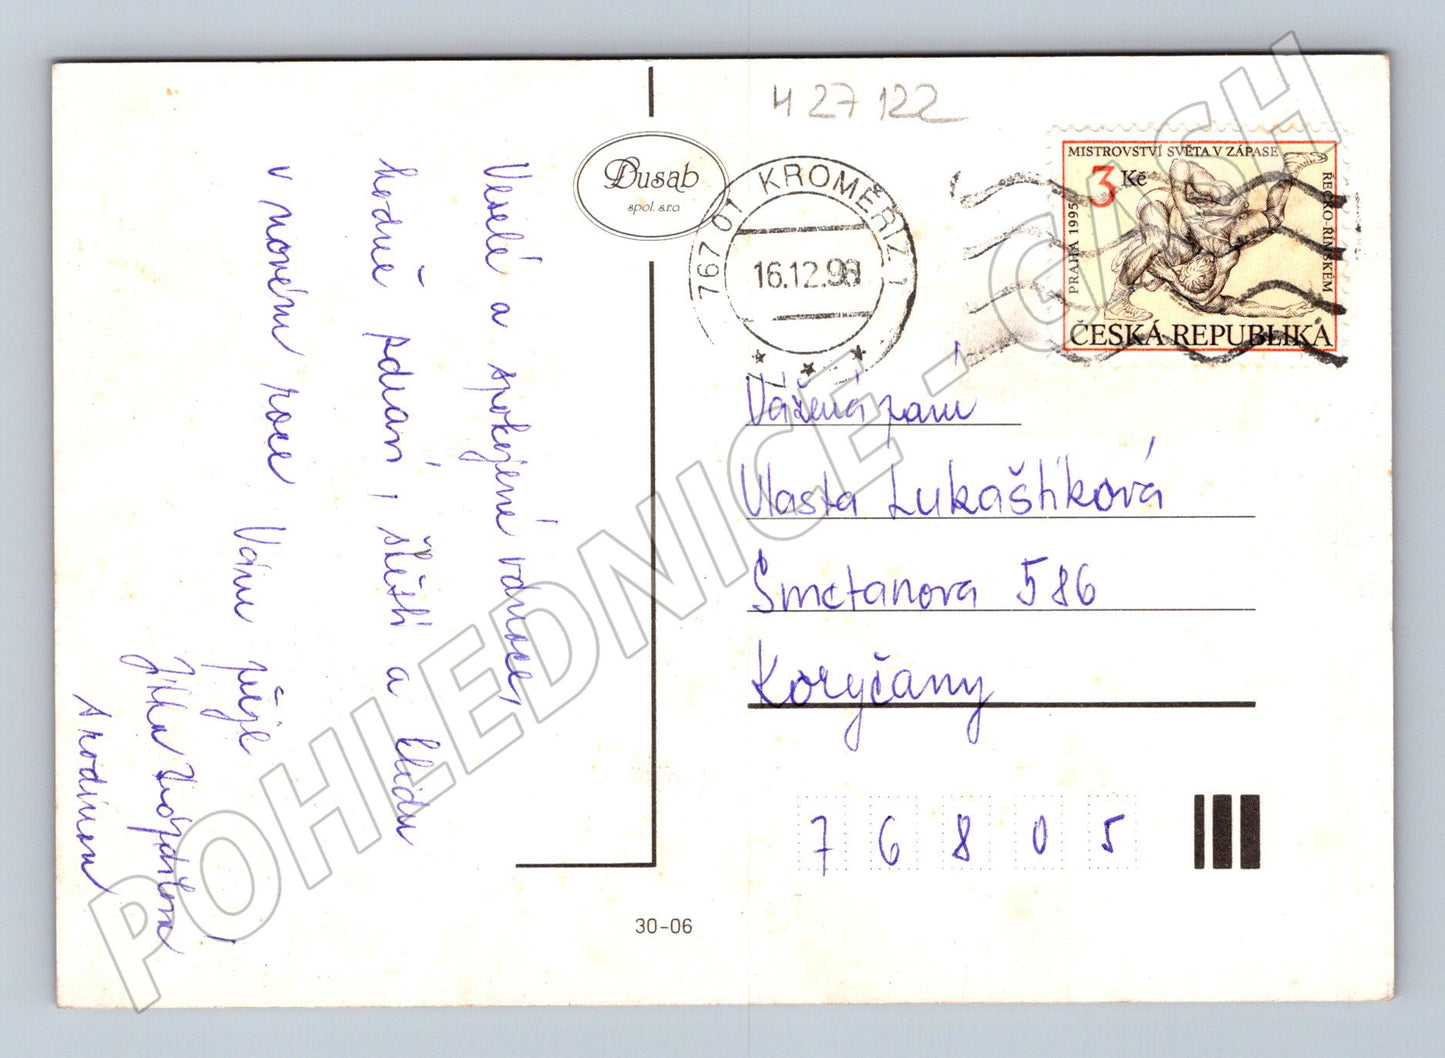 Veselé a spokojené vánoce,
hodně zdraví, štěstí a klidu
v novém roce Vám přeje
Jitka
s rodinou
Dusab
spol. s r.o.
30-06
4 27 122
767 01 KROMĚŘÍŽ 1
16.12.98
MISTROVSTVÍ SVĚTA V ZÁPASE
ŘECKO-ŘÍMSKÉM
PRAHA 1995
3 Kč
ČESKÁ REPUBLIKA
Vážená paní
Vlasta Lukaštíková
Smetanova 586
Koryčany
76805
POHLEDNICE - CASH